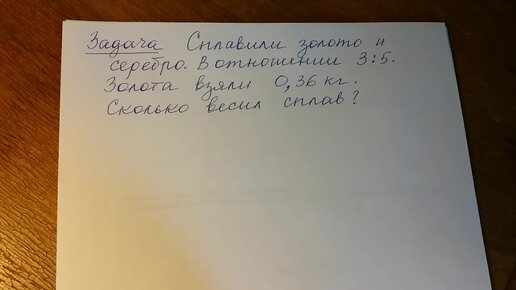 Задача Сплавили золото и
серебро. В отношении 3:5.
Золота взяли 0,36 кг.
Сколько весил сплав?